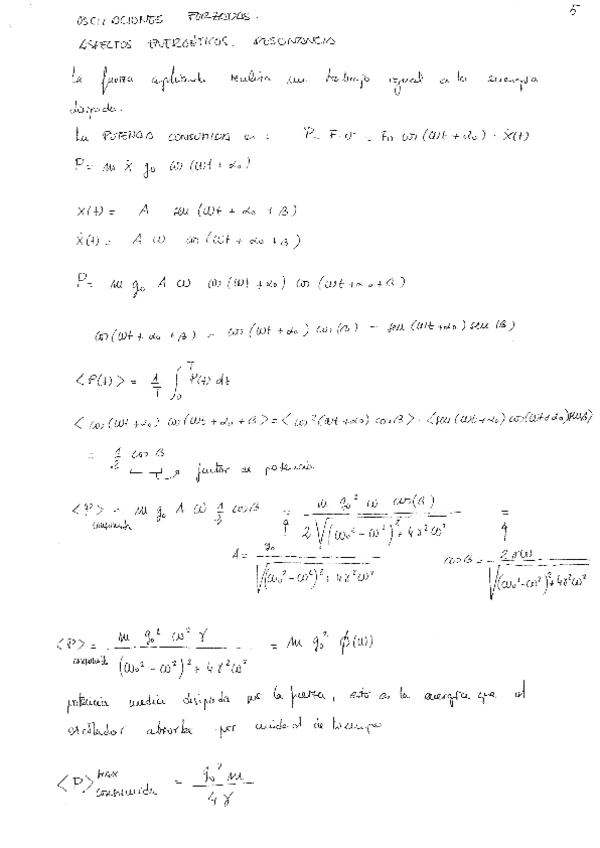 5
OSCILACIONES FORZADAS.
ASPECTOS ENERGÉTICOS. RESONANCIA
La fuerza aplicada realiza un trabajo igual a la energía
disipada.
La POTENCIA CONSUMIDA es : P = F·v = F₀ cos (ωt + α₀) · ẋ(t)
P = m ẋ g₀ cos (ωt + α₀)
x(t) = A sen (ωt + α₀ + β)
ẋ(t) = A ω cos (ωt + α₀ + β)
P = m g₀ A ω cos (ωt + α₀) cos (ωt + α₀ + β)
cos (ωt + α₀ + β) = cos (ωt + α₀) cos (β) - sen (ωt + α₀) sen (β)
<P(t)> = 1/T ∫₀ᵀ P(t) dt
< cos (ωt + α₀) cos (ωt + α₀ + β > = < cos² (ωt + α₀) cos β > - < sen (ωt + α₀) cos (ωt + α₀) sen β >
= 1/2 cos β
factor de potencia
<P> consumida = m g₀ A ω 1/2 cos β = m g₀² ω cos (β) / 2 √((ω₀² - ω²)² + 4γ²ω²) =
A = g₀ / √((ω₀² - ω²)² + 4γ²ω²) cos β = 2γω / √((ω₀² - ω²)² + 4γ²ω²)
<P> consumida = m g₀² ω² γ / (ω₀² - ω²)² + 4γ²ω² = m g₀² ϕ(ω)
potencia media disipada por la fuerza, esto es la energía que el
oscilador absorbe por unidad de tiempo
<P> MAX consumida = g₀² m / 4γ